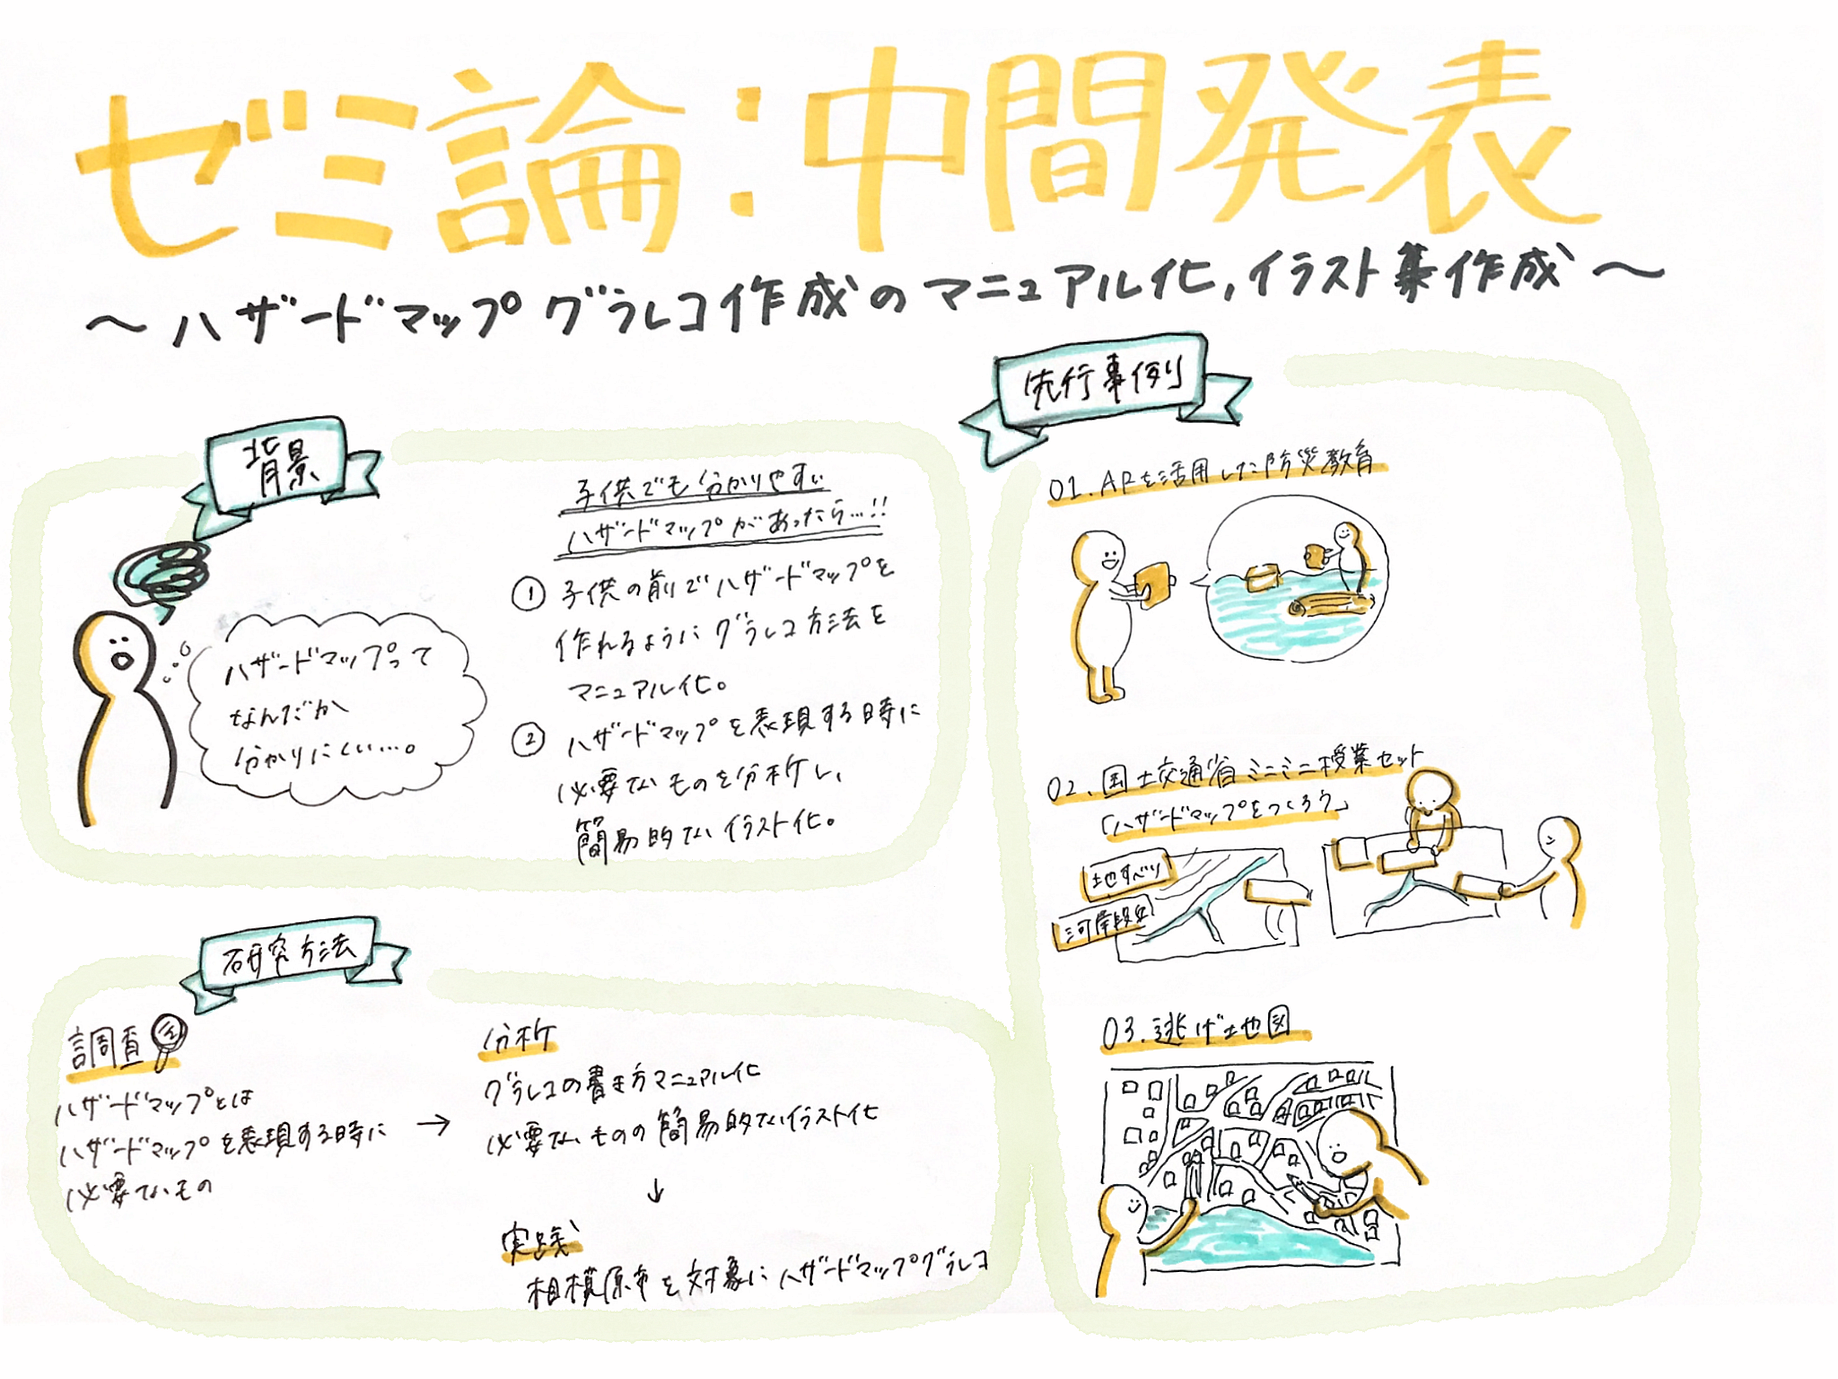 ゼミ論:中間発表
〜ハザードマップグラレコ作成のマニュアル化,イラスト集作成〜
背景
ハザードマップって
なんだか
分かりにくい…。
子供でも分かりやすい
ハザードマップがあったら…!!
① 子供の前でハザードマップを
作れるようにグラレコ方法を
マニュアル化。
② ハザードマップを表現する時に
必要なものを分析し、
簡易的なイラスト化。
研究方法
調査
ハザードマップとは
ハザードマップを表現する時に
必要なもの
→
分析
グラレコの書き方マニュアル化
必要なものの簡易的なイラスト化
↓
実践
相模原市を対象にハザードマップグラレコ
先行事例
01.ARを活用した防災教育
02.国土交通省ミニミニ授業セット
「ハザードマップをつくろう」
地すべり
河岸段丘
03.逃げ地図